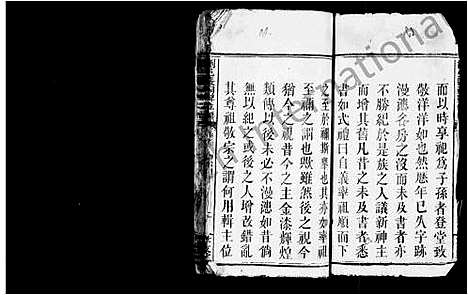 而以時享祀為子孫者登堂致
敬洋洋如也然歷年已久字跡
漫漶各房之沒而未及書者亦
不勝紀於是族之人議新神主
而增其舊凡昔之未及書者悉
書如式禮曰自義率祖順而下
之至於禰斯舉也其亦如率祖
至禰之謂也歟雖然後之視今
猶今之視昔今之主金漆輝煌
類傳以後未必不漫漶如昔倘
無以紀之或後之人增改錯亂
其尊祖敬宗之謂何用輯主位
International